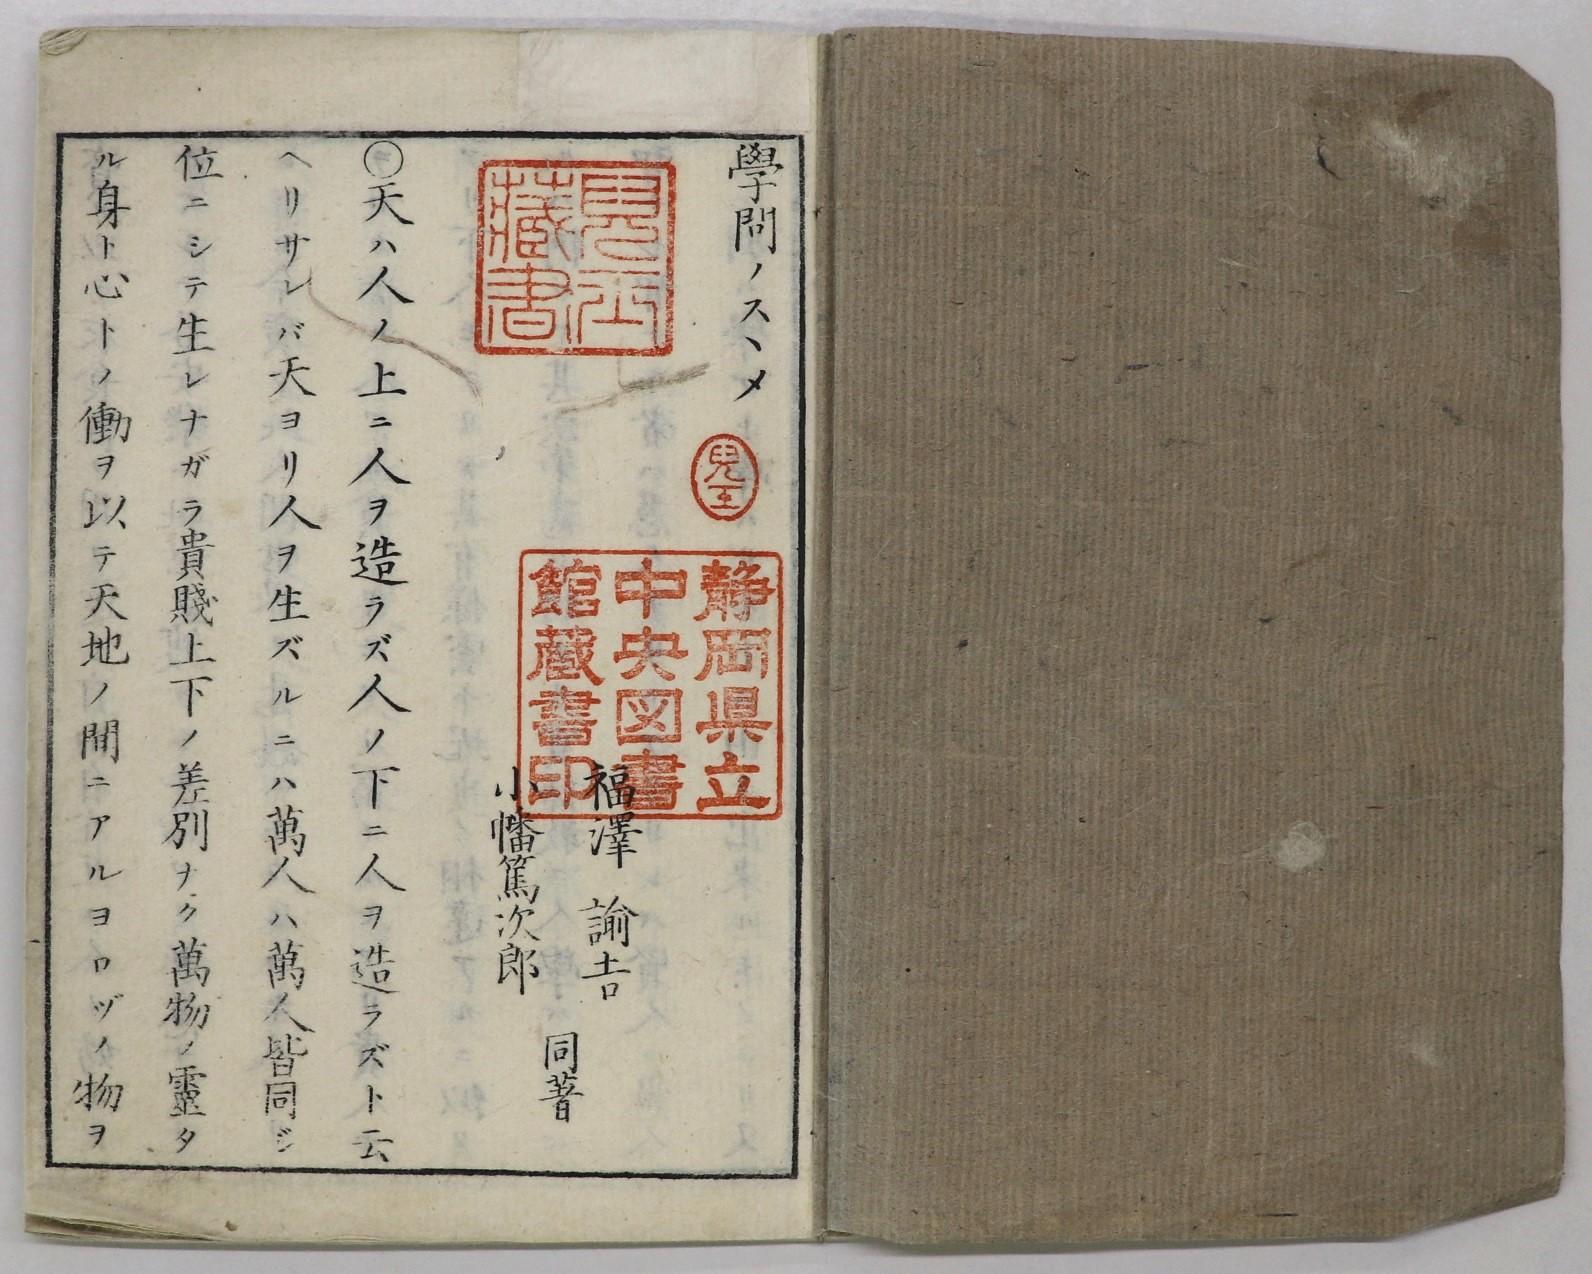 學問ノスヽメ
福澤諭吉
小幡篤次郎
同著
〇天ハ人ノ上ニ人ヲ造ラズ人ノ下ニ人ヲ造ラズト云
ヘリサレバ天ヨリ人ヲ生ズルニハ萬人ハ萬人皆同ジ
位ニシテ生レナガラ貴賤上下ノ差別ナク萬物ノ靈タ
ル身ト心トノ働ヲ以テ天地ノ間ニアルヨロヅノ物ヲ
藏書
静岡県立
中央図書
館蔵書印